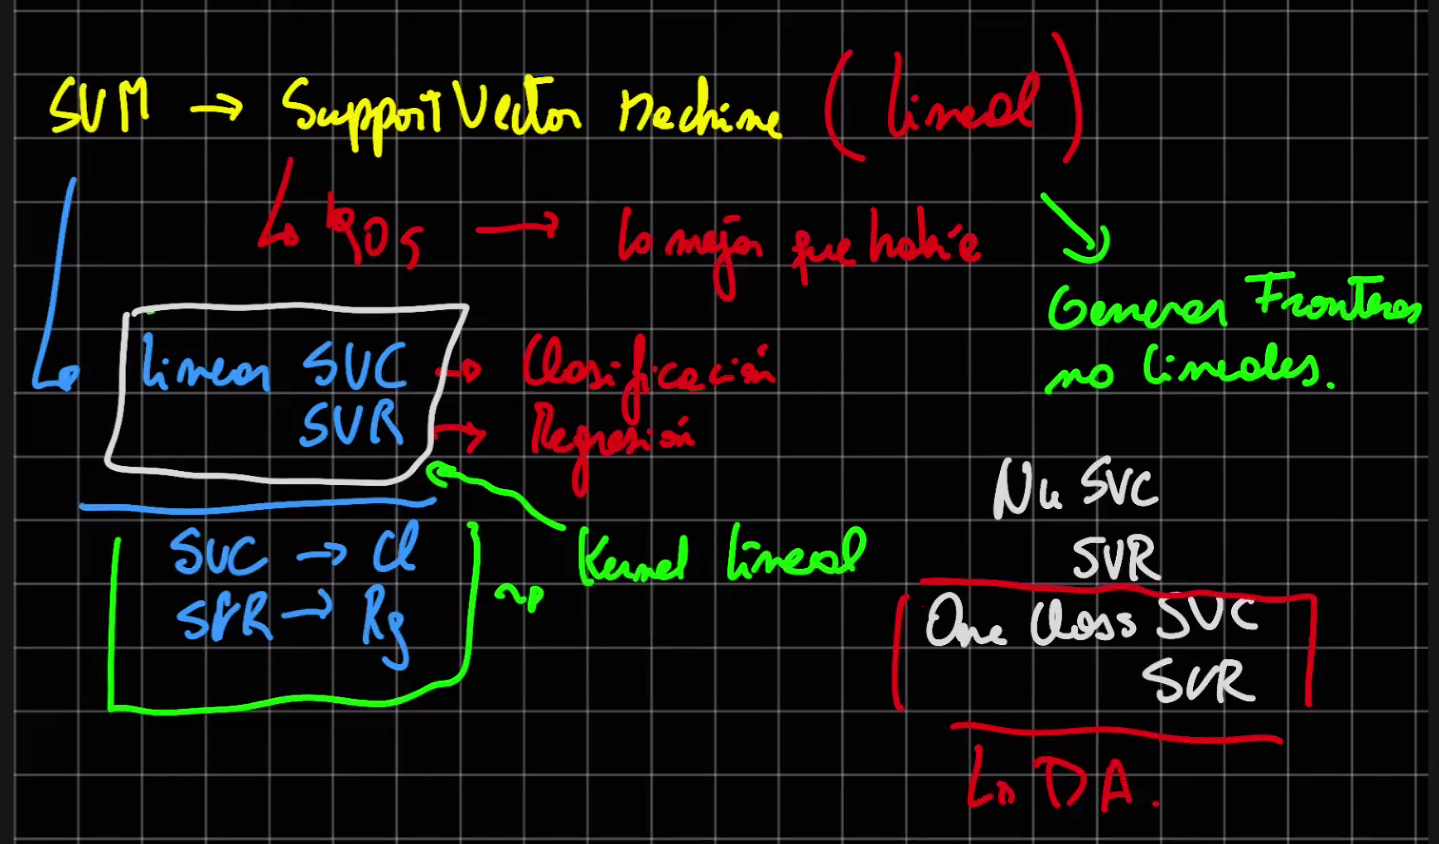 SVM → Support Vector Machine (Lineal)
↳ 90s → Lo mejor que había
Generar Fronteras
no lineales.
Linear SVC → Clasificación
SVR → Regresión
Nu SVC
SVR
SVC → Cl
SVR → Rg
Kernel Lineal
One Class SVC
SVR
↳ DA.